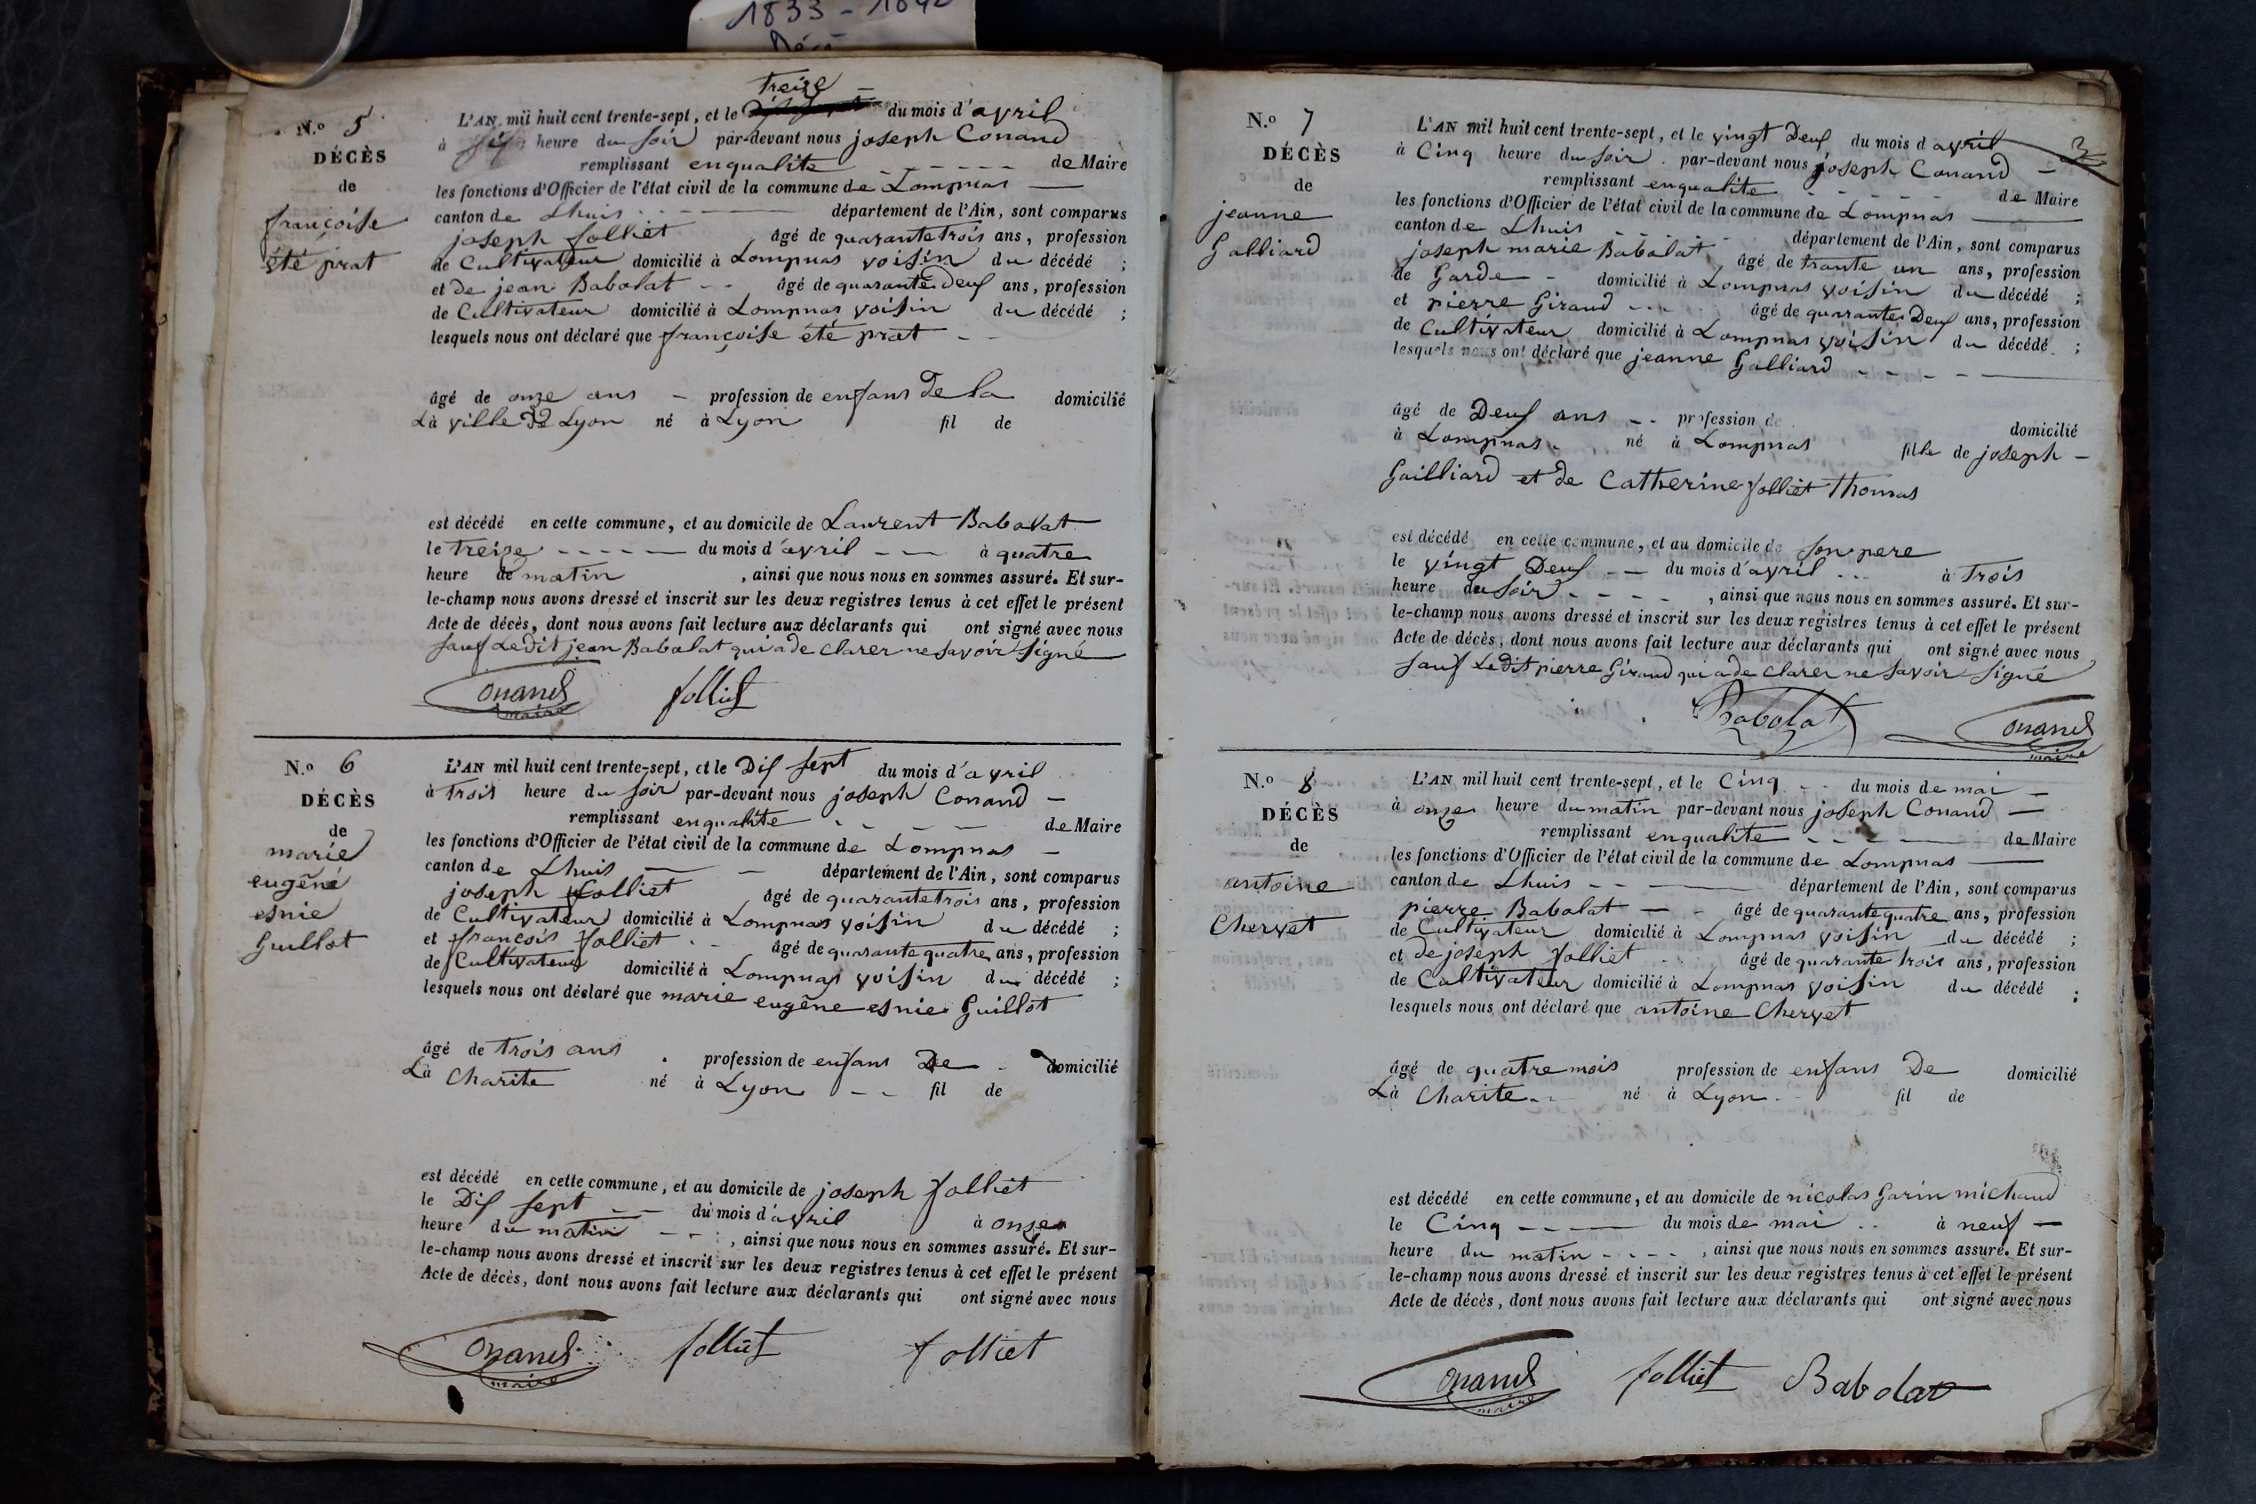 1833 - 1842
N.º 5
DÉCÈS
de
françoise
été prat
treize
L'AN mil huit cent trente-sept, et le du mois d'avril
à heure du soir par-devant nous joseph Conand
remplissant enqualite de Maire
les fonctions d'Officier de l'état civil de la commune de Lompnas
canton de Lhuis département de l'Ain, sont comparus
joseph folliet âgé de quarantetrois ans, profession
de Cultivateur domicilié à Lompnas voisin du décédé ;
et de jean Babolat âgé de quarante deux ans, profession
de Cultivateur domicilié à Lompnas voisin du décédé ;
lesquels nous ont déclaré que françoise été prat
âgé de onze ans profession de enfans de la domicilié
Là ville de Lyon né à Lyon fil de
est décédé en cette commune, et au domicile de Laurent Babolat
le treize du mois d'avril à quatre
heure de matin , ainsi que nous nous en sommes assuré. Et sur-
le-champ nous avons dressé et inscrit sur les deux registres tenus à cet effet le présent
Acte de décès, dont nous avons fait lecture aux déclarants qui ont signé avec nous
sauf Ledit jean Babolat qui a de clarer ne savoir signé
Conand maire folliet
N.º 6
DÉCÈS
de
marie
eugêne
esnie
Guillot
L'AN mil huit cent trente-sept, et le Dix sept du mois d'avril
à trois heure du soir par-devant nous joseph Conand
remplissant enqualite de Maire
les fonctions d'Officier de l'état civil de la commune de Lompnas
canton de Lhuis département de l'Ain, sont comparus
joseph folliet âgé de quarantetrois ans, profession
de Cultivateur domicilié à Lompnas voisin du décédé ;
et françois folliet âgé de quarante quatre ans, profession
de Cultivateur domicilié à Lompnas voisin du décédé ;
lesquels nous ont déclaré que marie eugêne esnie Guillot
âgé de trois ans profession de enfans De domicilié
Là Charite né à Lyon fil de
est décédé en cette commune, et au domicile de joseph folliet
le Dix sept du mois d'avril à onze
heure du matin , ainsi que nous nous en sommes assuré. Et sur-
le-champ nous avons dressé et inscrit sur les deux registres tenus à cet effet le présent
Acte de décès, dont nous avons fait lecture aux déclarants qui ont signé avec nous
Conand maire folliet folliet
3
N.º 7
DÉCÈS
de
jeanne
Galliard
L'AN mil huit cent trente-sept, et le vingt Deux du mois d avril
à Cinq heure du soir par-devant nous joseph Conand
remplissant enqualite de Maire
les fonctions d'Officier de l'état civil de la commune de Lompnas
canton de Lhuis département de l'Ain, sont comparus
joseph marie Babolat âgé de trante un ans, profession
de Garde domicilié à Lompnas voisin du décédé ;
et pierre Giraud âgé de quarante Deux ans, profession
de Cultivateur domicilié à Lompnas voisin du décédé ;
lesquels nous ont déclaré que jeanne Galliard
âgé de Deux ans profession de domicilié
à Lompnas né à Lompnas fille de joseph
Gailliard et de Catherine folliet thomas
est décédé en cette commune, et au domicile de son pere
le vingt Deux du mois d'avril à trois
heure du soir , ainsi que nous nous en sommes assuré. Et sur-
le-champ nous avons dressé et inscrit sur les deux registres tenus à cet effet le présent
Acte de décès, dont nous avons fait lecture aux déclarants qui ont signé avec nous
sauf Ledit pierre Giraud qui a de clarer ne savoir signé
Babolat Conand maire
N.º 8
DÉCÈS
de
antoine
Chervet
L'AN mil huit cent trente-sept, et le Cinq du mois de mai
à onze heure du matin par-devant nous joseph Conand
remplissant enqualite de Maire
les fonctions d'Officier de l'état civil de la commune de Lompnas
canton de Lhuis département de l'Ain, sont comparus
pierre Babolat âgé de quarantequatre ans, profession
de Cultivateur domicilié à Lompnas voisin du décédé ;
et de joseph folliet âgé de quarante trois ans, profession
de Cultivateur domicilié à Lompnas voisin du décédé ;
lesquels nous ont déclaré que antoine Chervet
âgé de quatre mois profession de enfans De domicilié
Là Charite né à Lyon fil de
est décédé en cette commune, et au domicile de nicolas Garin michaud
le Cinq du mois de mai à neuf
heure du matin , ainsi que nous nous en sommes assuré. Et sur-
le-champ nous avons dressé et inscrit sur les deux registres tenus à cet effet le présent
Acte de décès, dont nous avons fait lecture aux déclarants qui ont signé avec nous
Conand maire folliet Babolat